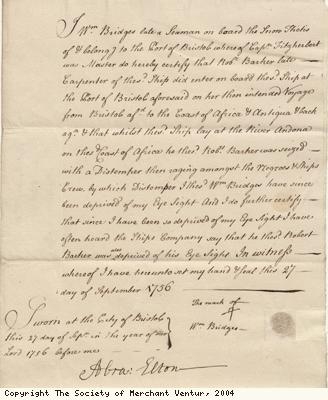 I Wm Bridges late a Seaman on board the Snow Thetis
of & belong.g to the Port of Bristol whereof Capt. Fitzherbert
was Master do hereby certify that Robt. Barker late
Carpenter of the sd. Ship did enter on board the sd. Ship at
the Port of Bristol aforesaid on her then intended Voyage
from Bristol afsd. to the Coast of Africa & Antigua & back
agn. & that whilst the sd. Ship lay at the River Andona
on the sd. Coast of Africa he the sd. Robt. Barker was seized
with a Distemper then raging amongst the Negroes & Ships
Crew, by which Distemper I the sd. Wm. Bridges have since
been deprived of my Eye Sight And I do further certify
that since I have been so deprived of my Eye Sight I have
often heard the Ships Company say that he the sd. Robert
Barker was also deprived of his Eye Sight In witness
whereof I have hereunto set my hand & Seal this 27
day of September 1756
The mark of
Wm Bridges
Sworn at the City of Bristol
this 27 day of Sept. in the year of our
Lord 1756 before me
Abra: Elton
Copyright The Society of Merchant Ventur, 2004